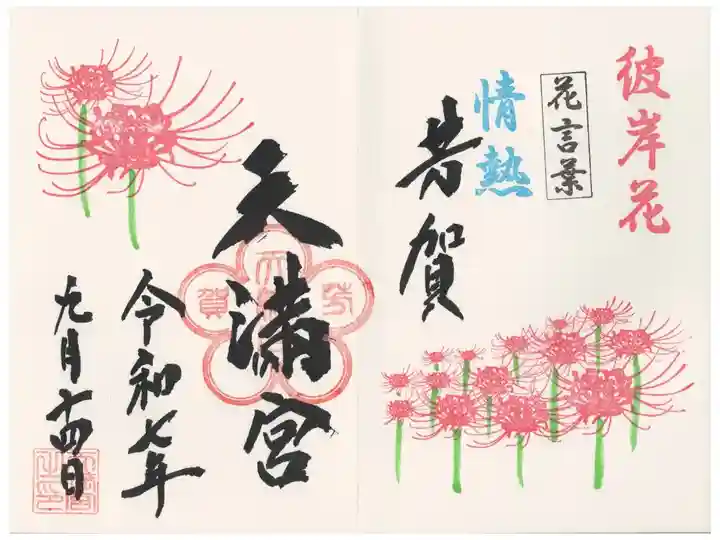 彼岸花
花言葉
情熱
芳賀
天満宮
天満
芳
賀
令和七年
九月十四日